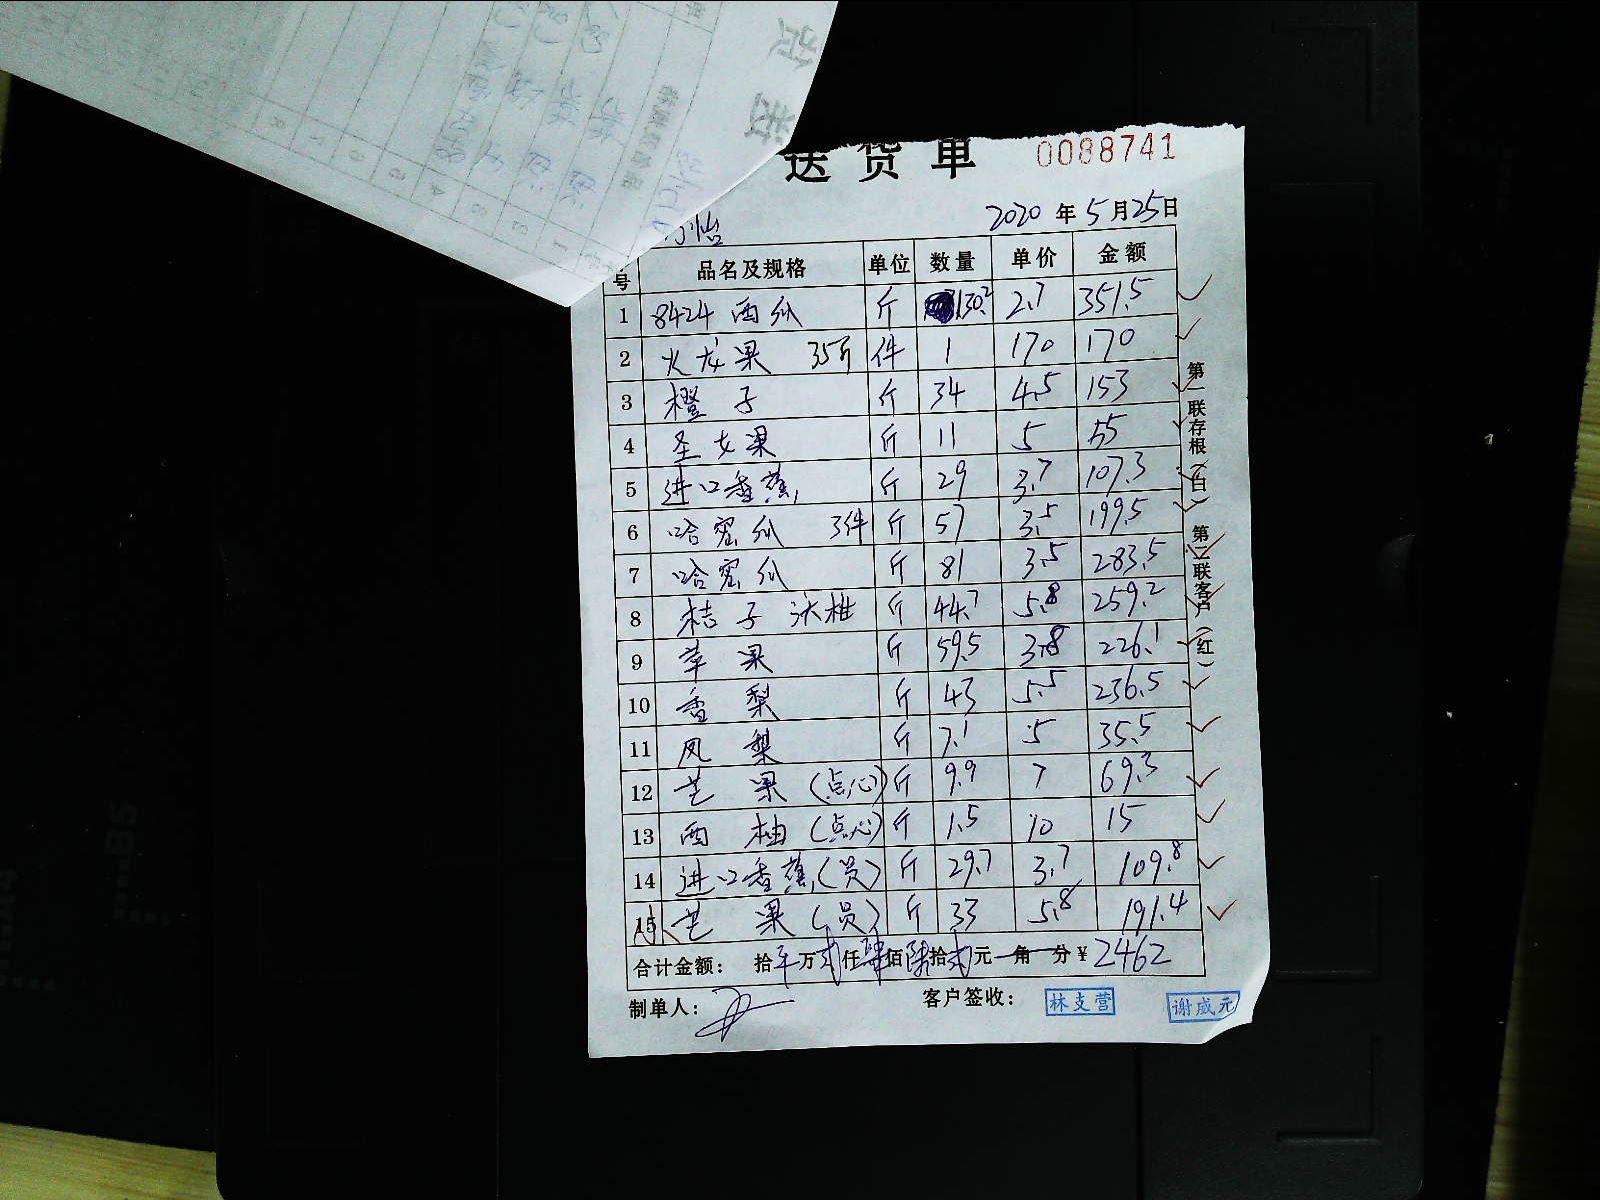 送货单 0088741
2020年5月25日
怡
号 品名及规格 单位 数量 单价 金额
1 8424西瓜 斤 130.2 2.7 351.5
2 火龙果 35斤 件 1 170 170
3 橙子 斤 34 4.5 153
4 圣女果 斤 11 5 55
5 进口香蕉 斤 29 3.7 107.3
6 哈密瓜 3件 斤 57 3.5 199.5
7 哈密瓜 斤 81 3.5 283.5
8 桔子 沃柑 斤 44.7 5.8 259.2
9 苹果 斤 59.5 3.8 226.1
10 香梨 斤 43 5.5 236.5
11 凤梨 斤 7.1 5 35.5
12 芒果(点心) 斤 9.9 7 69.3
13 西柚(点心) 斤 1.5 10 15
14 进口香蕉(员) 斤 29.7 3.7 109.8
15 芒果(员) 斤 33 5.8 191.4
合计金额: 拾 万贰仟肆佰陆拾贰元 角 分 ¥2462
制单人: 客户签收: 林支营 谢威元
第一联存根(白) 第二联客户(红)
B5
A4